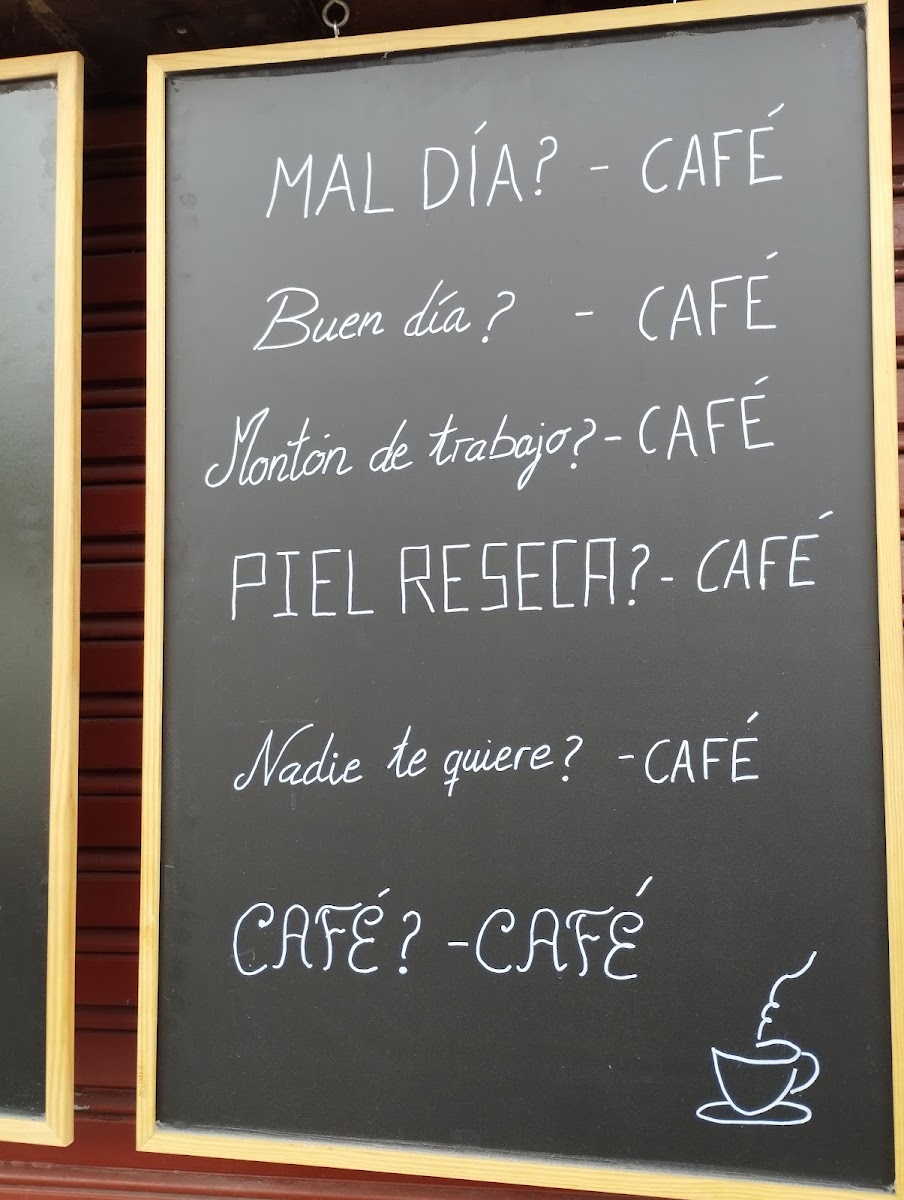 MAL DÍA? - CAFÉ
Buen día? - CAFÉ
Montón de trabajo? - CAFÉ
PIEL RESECA? - CAFÉ
Nadie te quiere? - CAFÉ
CAFÉ? - CAFÉ